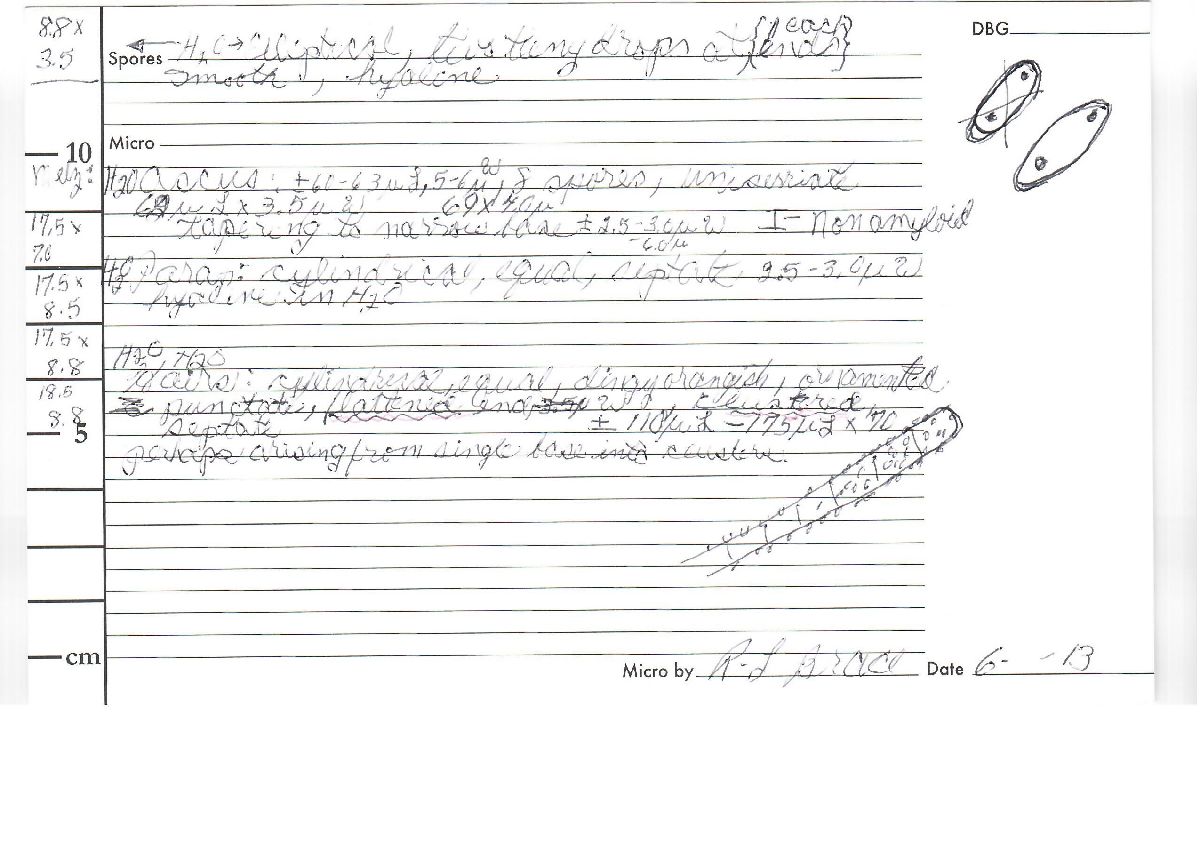 8.8 x
3.5
DBG
Spores ← H2O → elliptical, two tiny drops at {ends} {1 each}
smooth, hyaline
Micro
10
Melz:
H2O Ascus: ±60-63µ L, 5-6µ W, 8 spores, uniseriate
µ L x 3.5µ W 69 x 5.0µ
tapering to narrow base ± 2.5-3.0µ W I- Nonamyloid
-6.0µ
17.5 x
7.0
H2O Parap: cylindrical, equal, septate 2.5-3.0µ W
hyaline in H2O
17.5 x
8.5
17.5 x
8.8
H2O, H2O
Hairs: cylindrical, equal, dingy orangish, ornamented
punctate, flattened end, clustered,
septate ± 110µ L - 175µ L x 7.0
18.5
8.8
5
perhaps arising from single base in cluster.
cm
Micro by R-L Brace Date 6- -13